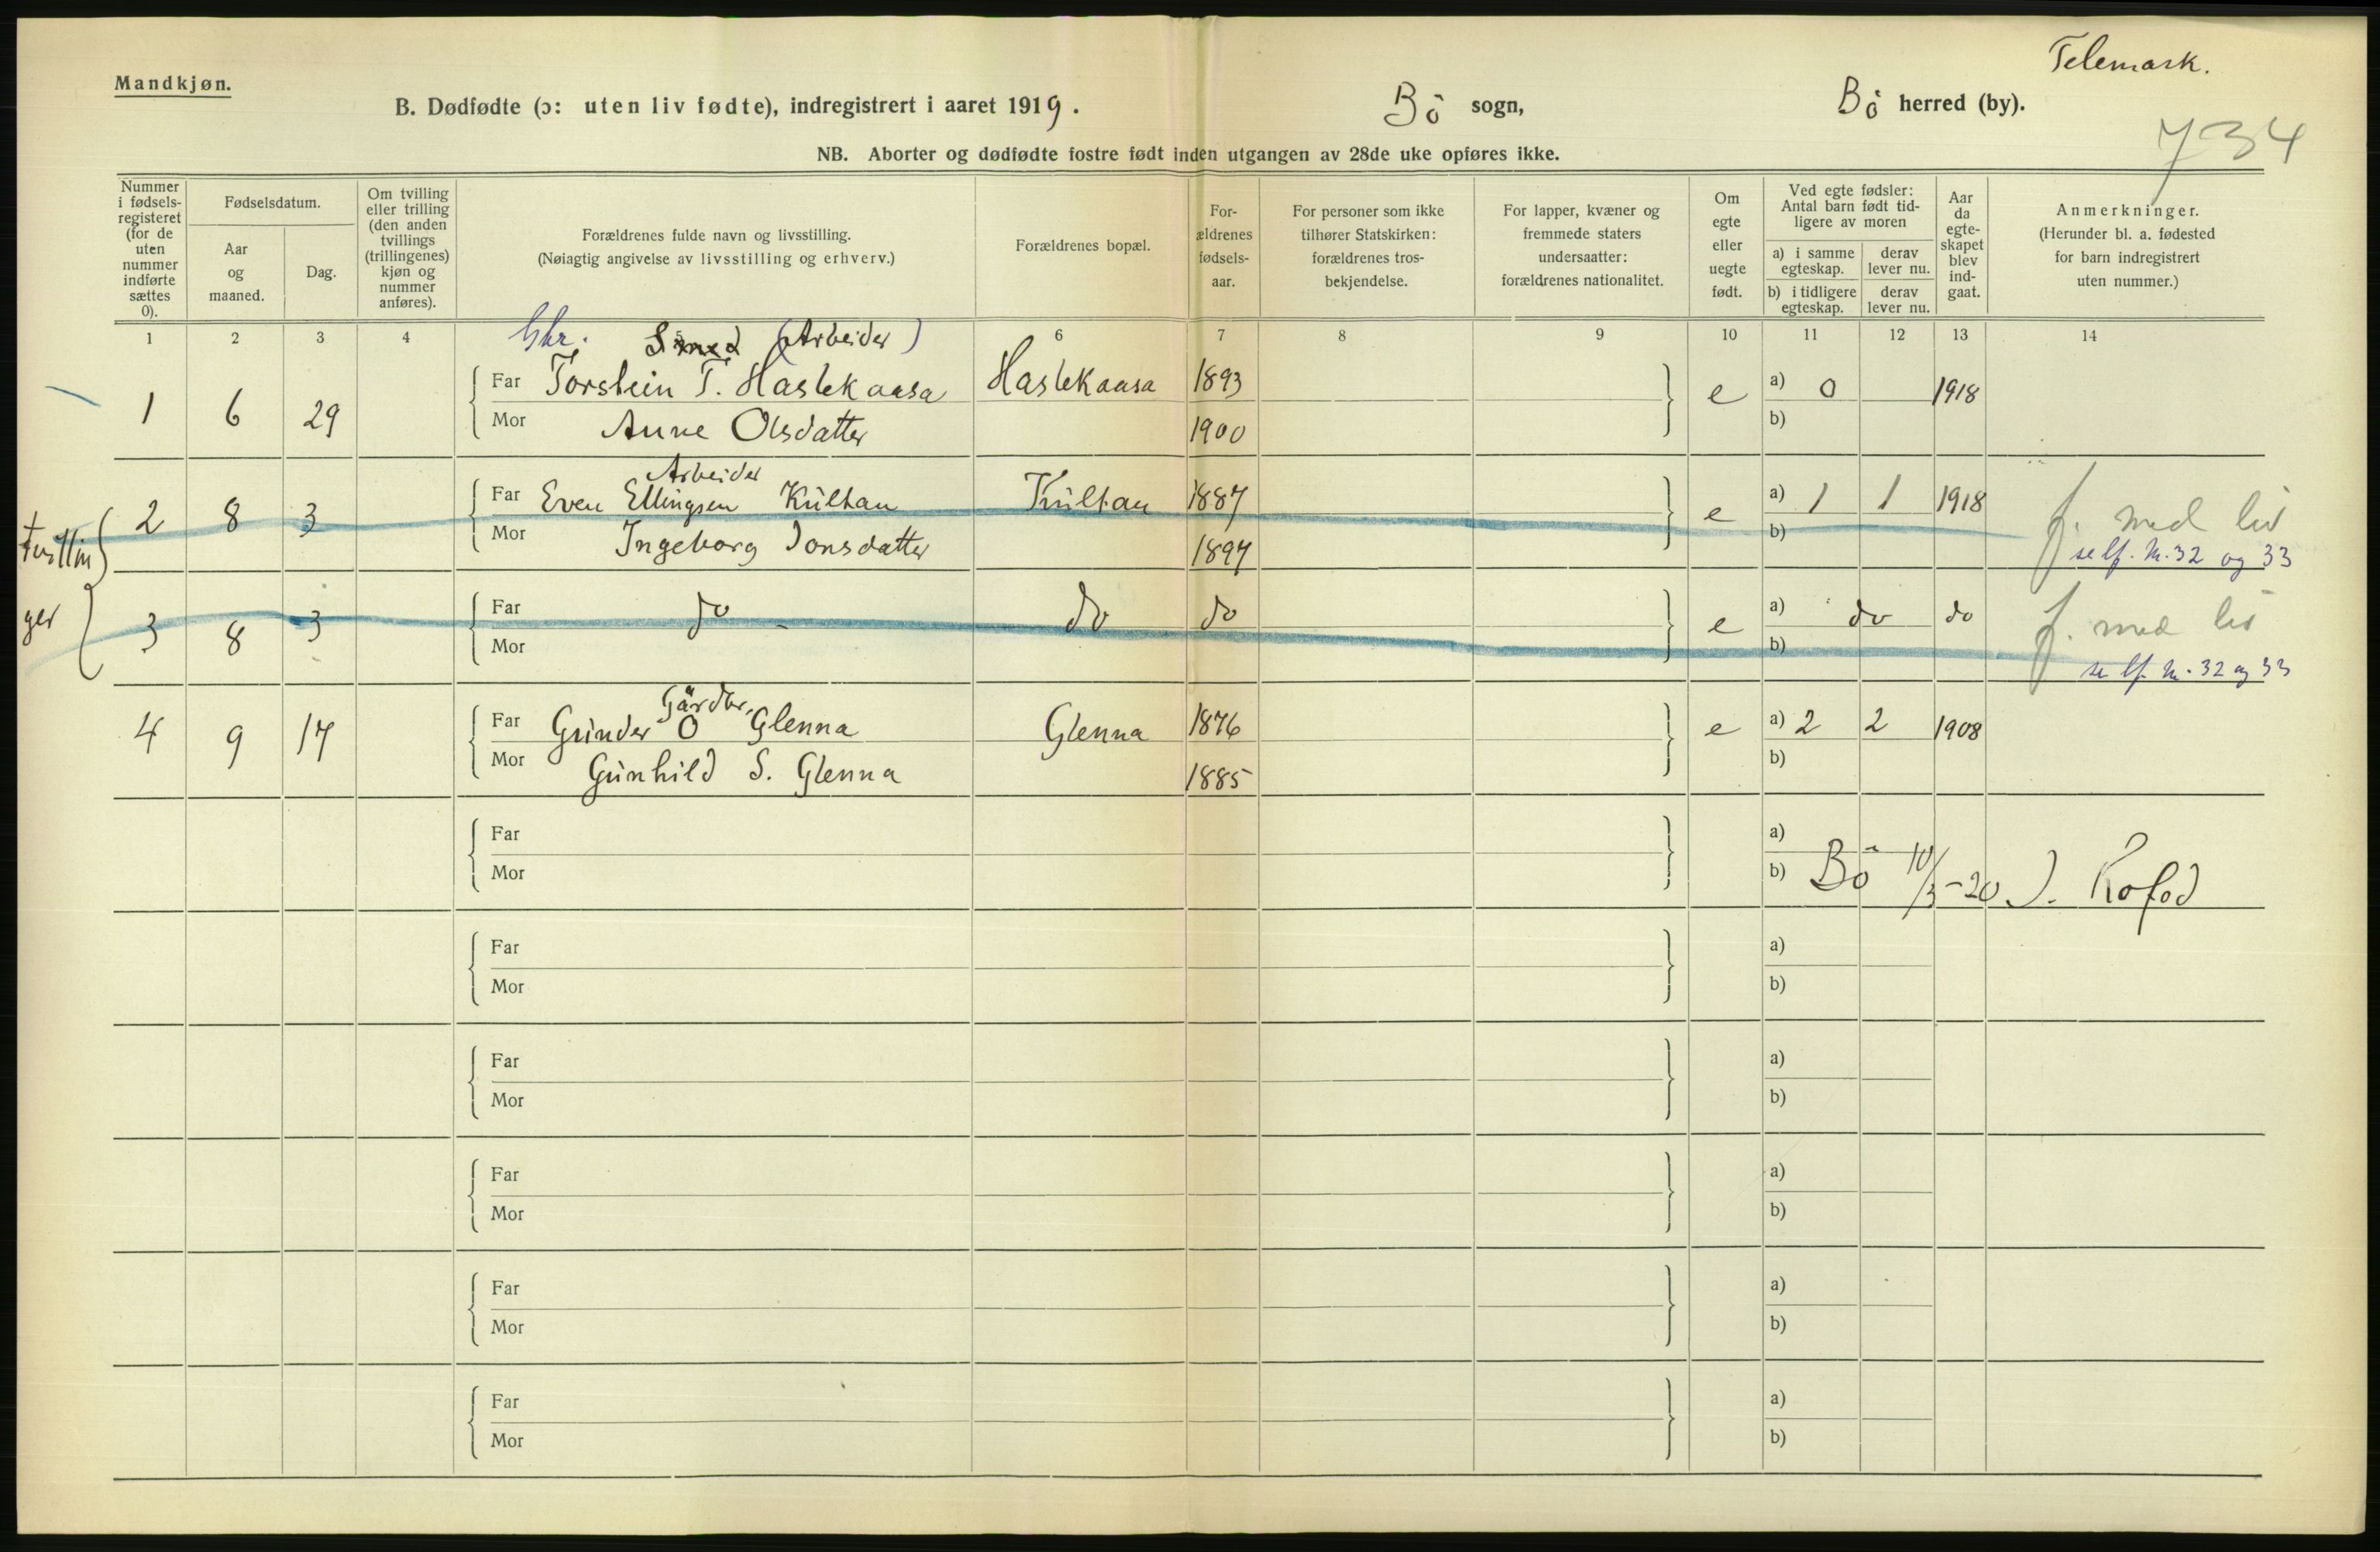 Telemark.
Mandkjøn.
B. Dødfødte (ɔ: uten liv fødte), indregistrert i aaret 1919. Bö sogn, Bö herred (by).
734
NB. Aborter og dødfødte fostre født inden utgangen av 28de uke opføres ikke.
Nummer i fødsels-registeret (for de uten nummer indførte sættes 0).
Fødselsdatum.
Aar og maaned.
Dag.
Om tvilling eller trilling (den anden tvillings (trillingenes) kjøn og nummer anføres).
Forældrenes fulde navn og livsstilling.
(Nøiagtig angivelse av livsstilling og erhverv.)
Forældrenes bopæl.
For-ældrenes fødsels-aar.
For personer som ikke tilhører Statskirken: forældrenes tros-bekjendelse.
For lapper, kvæner og fremmede staters undersaatter: forældrenes nationalitet.
Om egte eller uegte født.
Ved egte fødsler: Antal barn født tid-ligere av moren
a) i samme egteskap.
derav lever nu.
b) i tidligere egteskap.
derav lever nu.
Aar da egte-skapet blev ind-gaat.
Anmerkninger.
(Herunder bl. a. fødested for barn indregistrert uten nummer.)
1 2 3 4 6 7 8 9 10 11 12 13 14
Smed (Arbeider)
1 6 29 Far Torstein T. Haslekaasa Haslekaasa 1893 e a) 0 1918
Mor Anne Olsdatter 1900 b)
Arbeider
2 8 3 Far Even Ellingsen Kulhau Kulhau 1887 e a) 1 1 1918 f. med liv
Mor Ingeborg Jonsdatter 1897 b) se lf. N. 32 og 33
3 8 3 Far do do do e a) do do f. med liv
Mor b) se lf. N. 32 og 33
Gårdbr.
4 9 17 Far Gunder O Glenna Glenna 1876 e a) 2 2 1908
Mor Gunhild S. Glenna 1885 b)
Far a)
Mor b) Bö 10/3-20 J. Kofod
Far a)
Mor b)
Far a)
Mor b)
Far a)
Mor b)
Far a)
Mor b)
Far a)
Mor b)